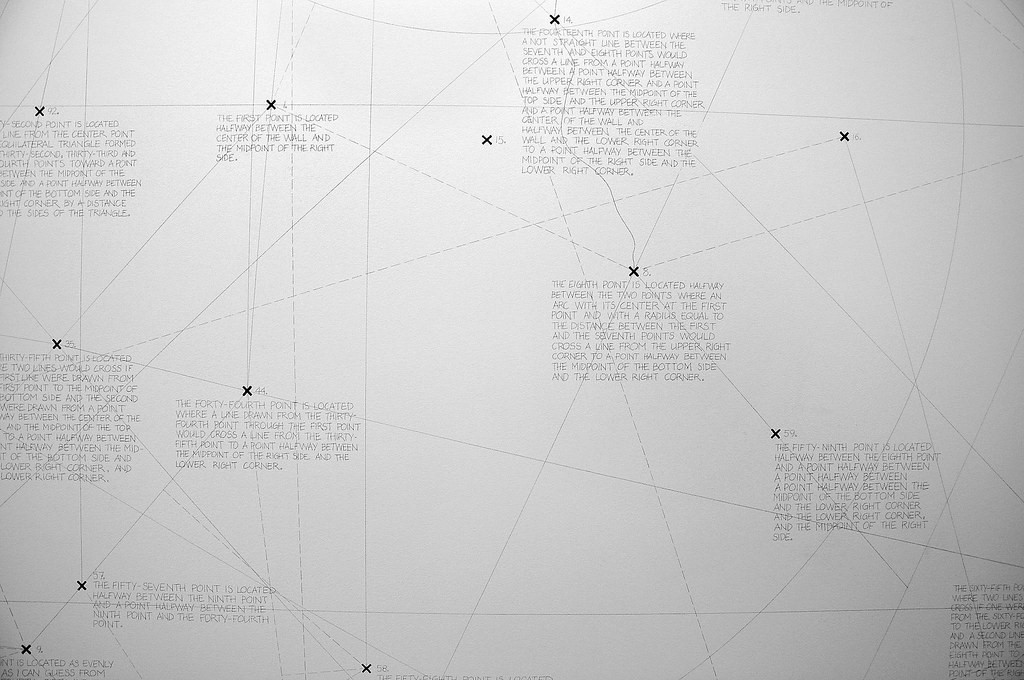 S AND THE MIDPOINT OF
THE RIGHT SIDE.
14.
THE FOURTEENTH POINT IS LOCATED WHERE
A NOT STRAIGHT LINE BETWEEN THE
SEVENTH AND EIGHTH POINTS WOULD
CROSS A LINE FROM A POINT HALFWAY
BETWEEN A POINT HALFWAY BETWEEN
THE UPPER RIGHT CORNER AND A POINT
HALFWAY BETWEEN THE MIDPOINT OF THE
TOP SIDE AND THE UPPER RIGHT CORNER
AND A POINT HALFWAY BETWEEN THE
CENTER OF THE WALL AND
HALFWAY BETWEEN THE CENTER OF THE
WALL AND THE LOWER RIGHT CORNER
TO A POINT HALFWAY BETWEEN THE
MIDPOINT OF THE RIGHT SIDE AND THE
LOWER RIGHT CORNER.
92.
Y-SECOND POINT IS LOCATED
LINE FROM THE CENTER POINT
EQUILATERAL TRIANGLE FORMED
THIRTY-SECOND, THIRTY-THIRD AND
OURTH POINTS TOWARD A POINT
BETWEEN THE MIDPOINT OF THE
SIDE AND A POINT HALFWAY BETWEEN
NT OF THE BOTTOM SIDE AND THE
RIGHT CORNER BY A DISTANCE
O THE SIDES OF THE TRIANGLE.
THE FIRST POINT IS LOCATED
HALFWAY BETWEEN THE
CENTER OF THE WALL AND
THE MIDPOINT OF THE RIGHT
SIDE.
15.
16.
8.
THE EIGHTH POINT IS LOCATED HALFWAY
BETWEEN THE TWO POINTS WHERE AN
ARC WITH ITS CENTER AT THE FIRST
POINT AND WITH A RADIUS EQUAL TO
THE DISTANCE BETWEEN THE FIRST
AND THE SEVENTH POINTS WOULD
CROSS A LINE FROM THE UPPER RIGHT
CORNER TO A POINT HALFWAY BETWEEN
THE MIDPOINT OF THE BOTTOM SIDE
AND THE LOWER RIGHT CORNER.
35.
THIRTY-FIFTH POINT IS LOCATED
E TWO LINES WOULD CROSS IF
FIRST LINE WERE DRAWN FROM
FIRST POINT TO THE MIDPOINT OF
BOTTOM SIDE AND THE SECOND
WERE DRAWN FROM A POINT
WAY BETWEEN THE CENTER OF THE
AND THE MIDPOINT OF THE TOP
TO A POINT HALFWAY BETWEEN
NT HALFWAY BETWEEN THE MID-
T OF THE BOTTOM SIDE AND
LOWER RIGHT CORNER. AND
LOWER RIGHT CORNER.
44.
THE FORTY-FOURTH POINT IS LOCATED
WHERE A LINE DRAWN FROM THE THIRTY-
FOURTH POINT THROUGH THE FIRST POINT
WOULD CROSS A LINE FROM THE THIRTY-
FIFTH POINT TO A POINT HALFWAY BETWEEN
THE MIDPOINT OF THE RIGHT SIDE AND THE
LOWER RIGHT CORNER.
59.
THE FIFTY-NINTH POINT IS LOCATED
HALFWAY BETWEEN THE EIGHTH POINT
AND A POINT HALFWAY BETWEEN
A POINT HALFWAY BETWEEN THE
MIDPOINT OF THE BOTTOM SIDE
AND THE LOWER RIGHT CORNER,
AND THE MIDPOINT OF THE RIGHT
SIDE.
57.
THE FIFTY-SEVENTH POINT IS LOCATED
HALFWAY BETWEEN THE NINTH POINT
AND A POINT HALFWAY BETWEEN THE
NINTH POINT AND THE FORTY-FOURTH
POINT.
9.
INT IS LOCATED AS EVENLY
AS I CAN GUESS FROM
58.
THE FIFTY-EIGHTH POINT IS LOCATED
THE SIXTY-FIFTH PO
WHERE TWO LINES
CROSS IF ONE WER
FROM THE SIXTY-FO
TO THE LOWER RI
AND A SECOND LIN
DRAWN FROM THE
EIGHTH POINT TO
HALFWAY BETWEE
POINT OF THE RIG